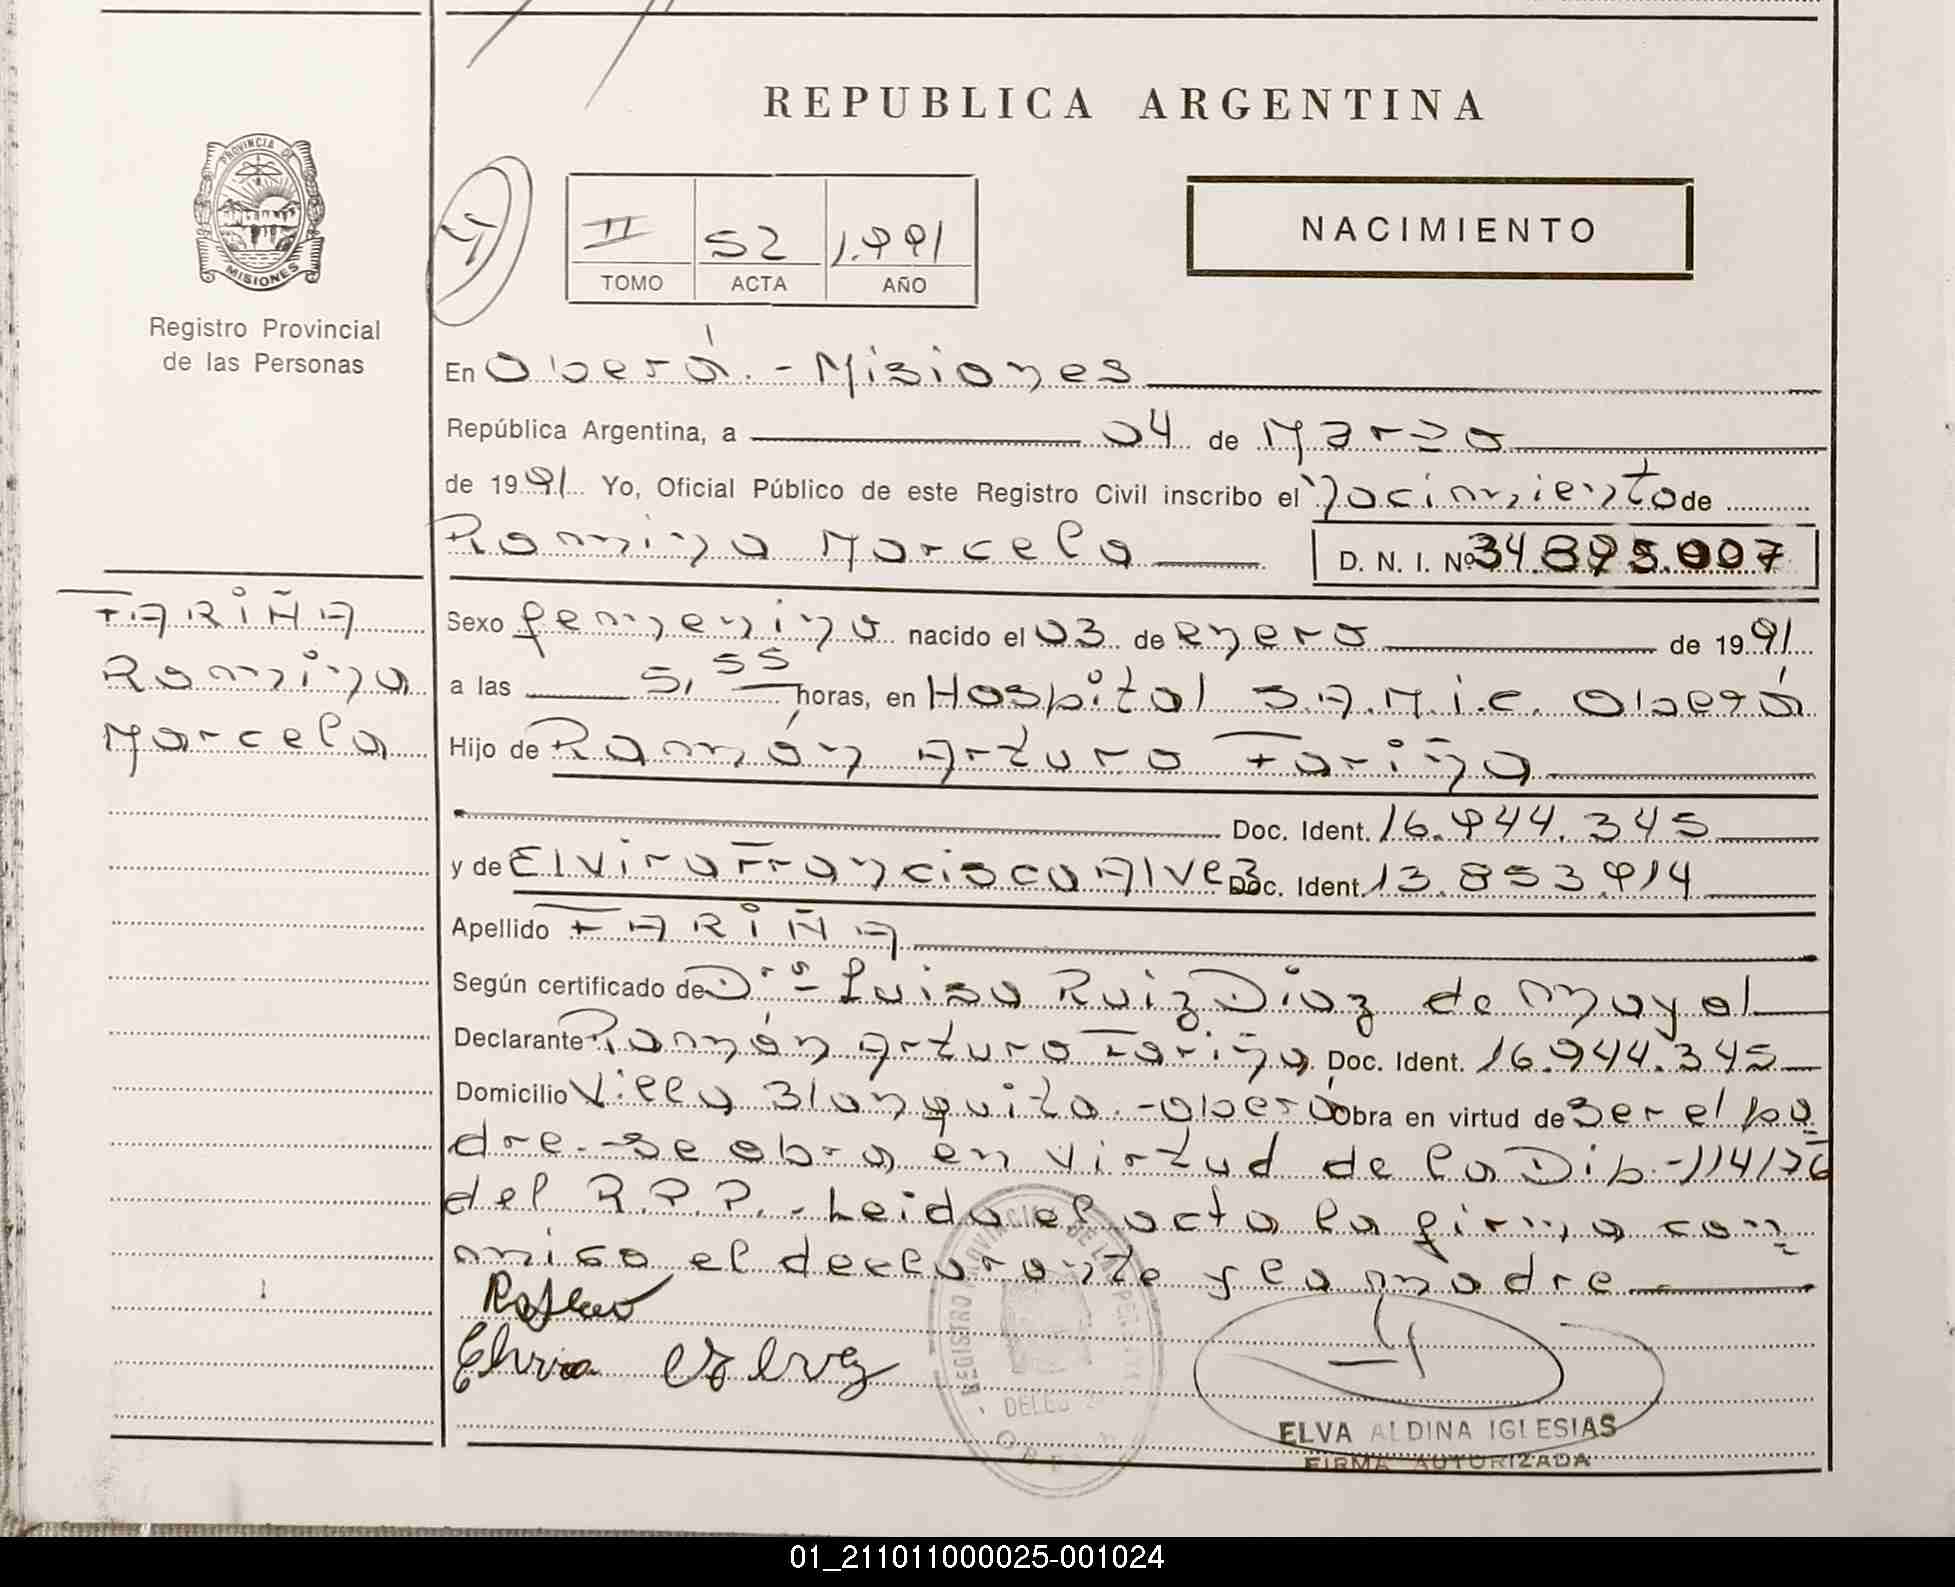 REPUBLICA ARGENTINA
PROVINCIA DE
MISIONES
Registro Provincial
de las Personas
II 52 1.991
TOMO ACTA AÑO
NACIMIENTO
En Oberá.-Misiones
República Argentina, a 04 de Marzo
de 1991 Yo, Oficial Público de este Registro Civil inscribo el Nacimiento de
Romina Marcela D. N. I. Nº 34.895.007
FARIÑA
Romina
Marcela
Sexo femenino nacido el 03 de enero de 1991
a las 5,55 horas, en Hospital S.A.M.i.c. Oberá
Hijo de Ramón Arturo Fariña
Doc. Ident. 16.944.345
y de Elvira Francisca Alvez Doc. Ident. 13.853.914
Apellido FARIÑA
Según certificado de Drª Luisa Ruiz Diaz de Mayol
Declarante Ramón Arturo Fariña, Doc. Ident. 16.944.345
Domicilio Villa Blanquita.-Oberá Obra en virtud de ser el pa
dre.-Se obra en virtud de la Dip.-114/76
del R.P.P.-Leida el acta la firma con
migo el declarante y la madre
Elvira Alvez
REGISTRO PROVINCIAL DE LAS PERSONAS
ELVA ALDINA IGLESIAS
FIRMA AUTORIZADA
01_211011000025-001024